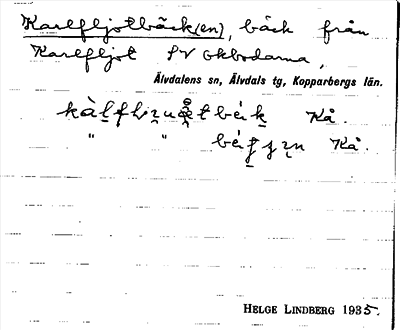 Karlfljotbäck(en), bäck från
Karlfljot SV Okbodarna,
Älvdalens sn, Älvdals tg, Kopparbergs län.
Kå.
" " Kå.
HELGE LINDBERG 1935.